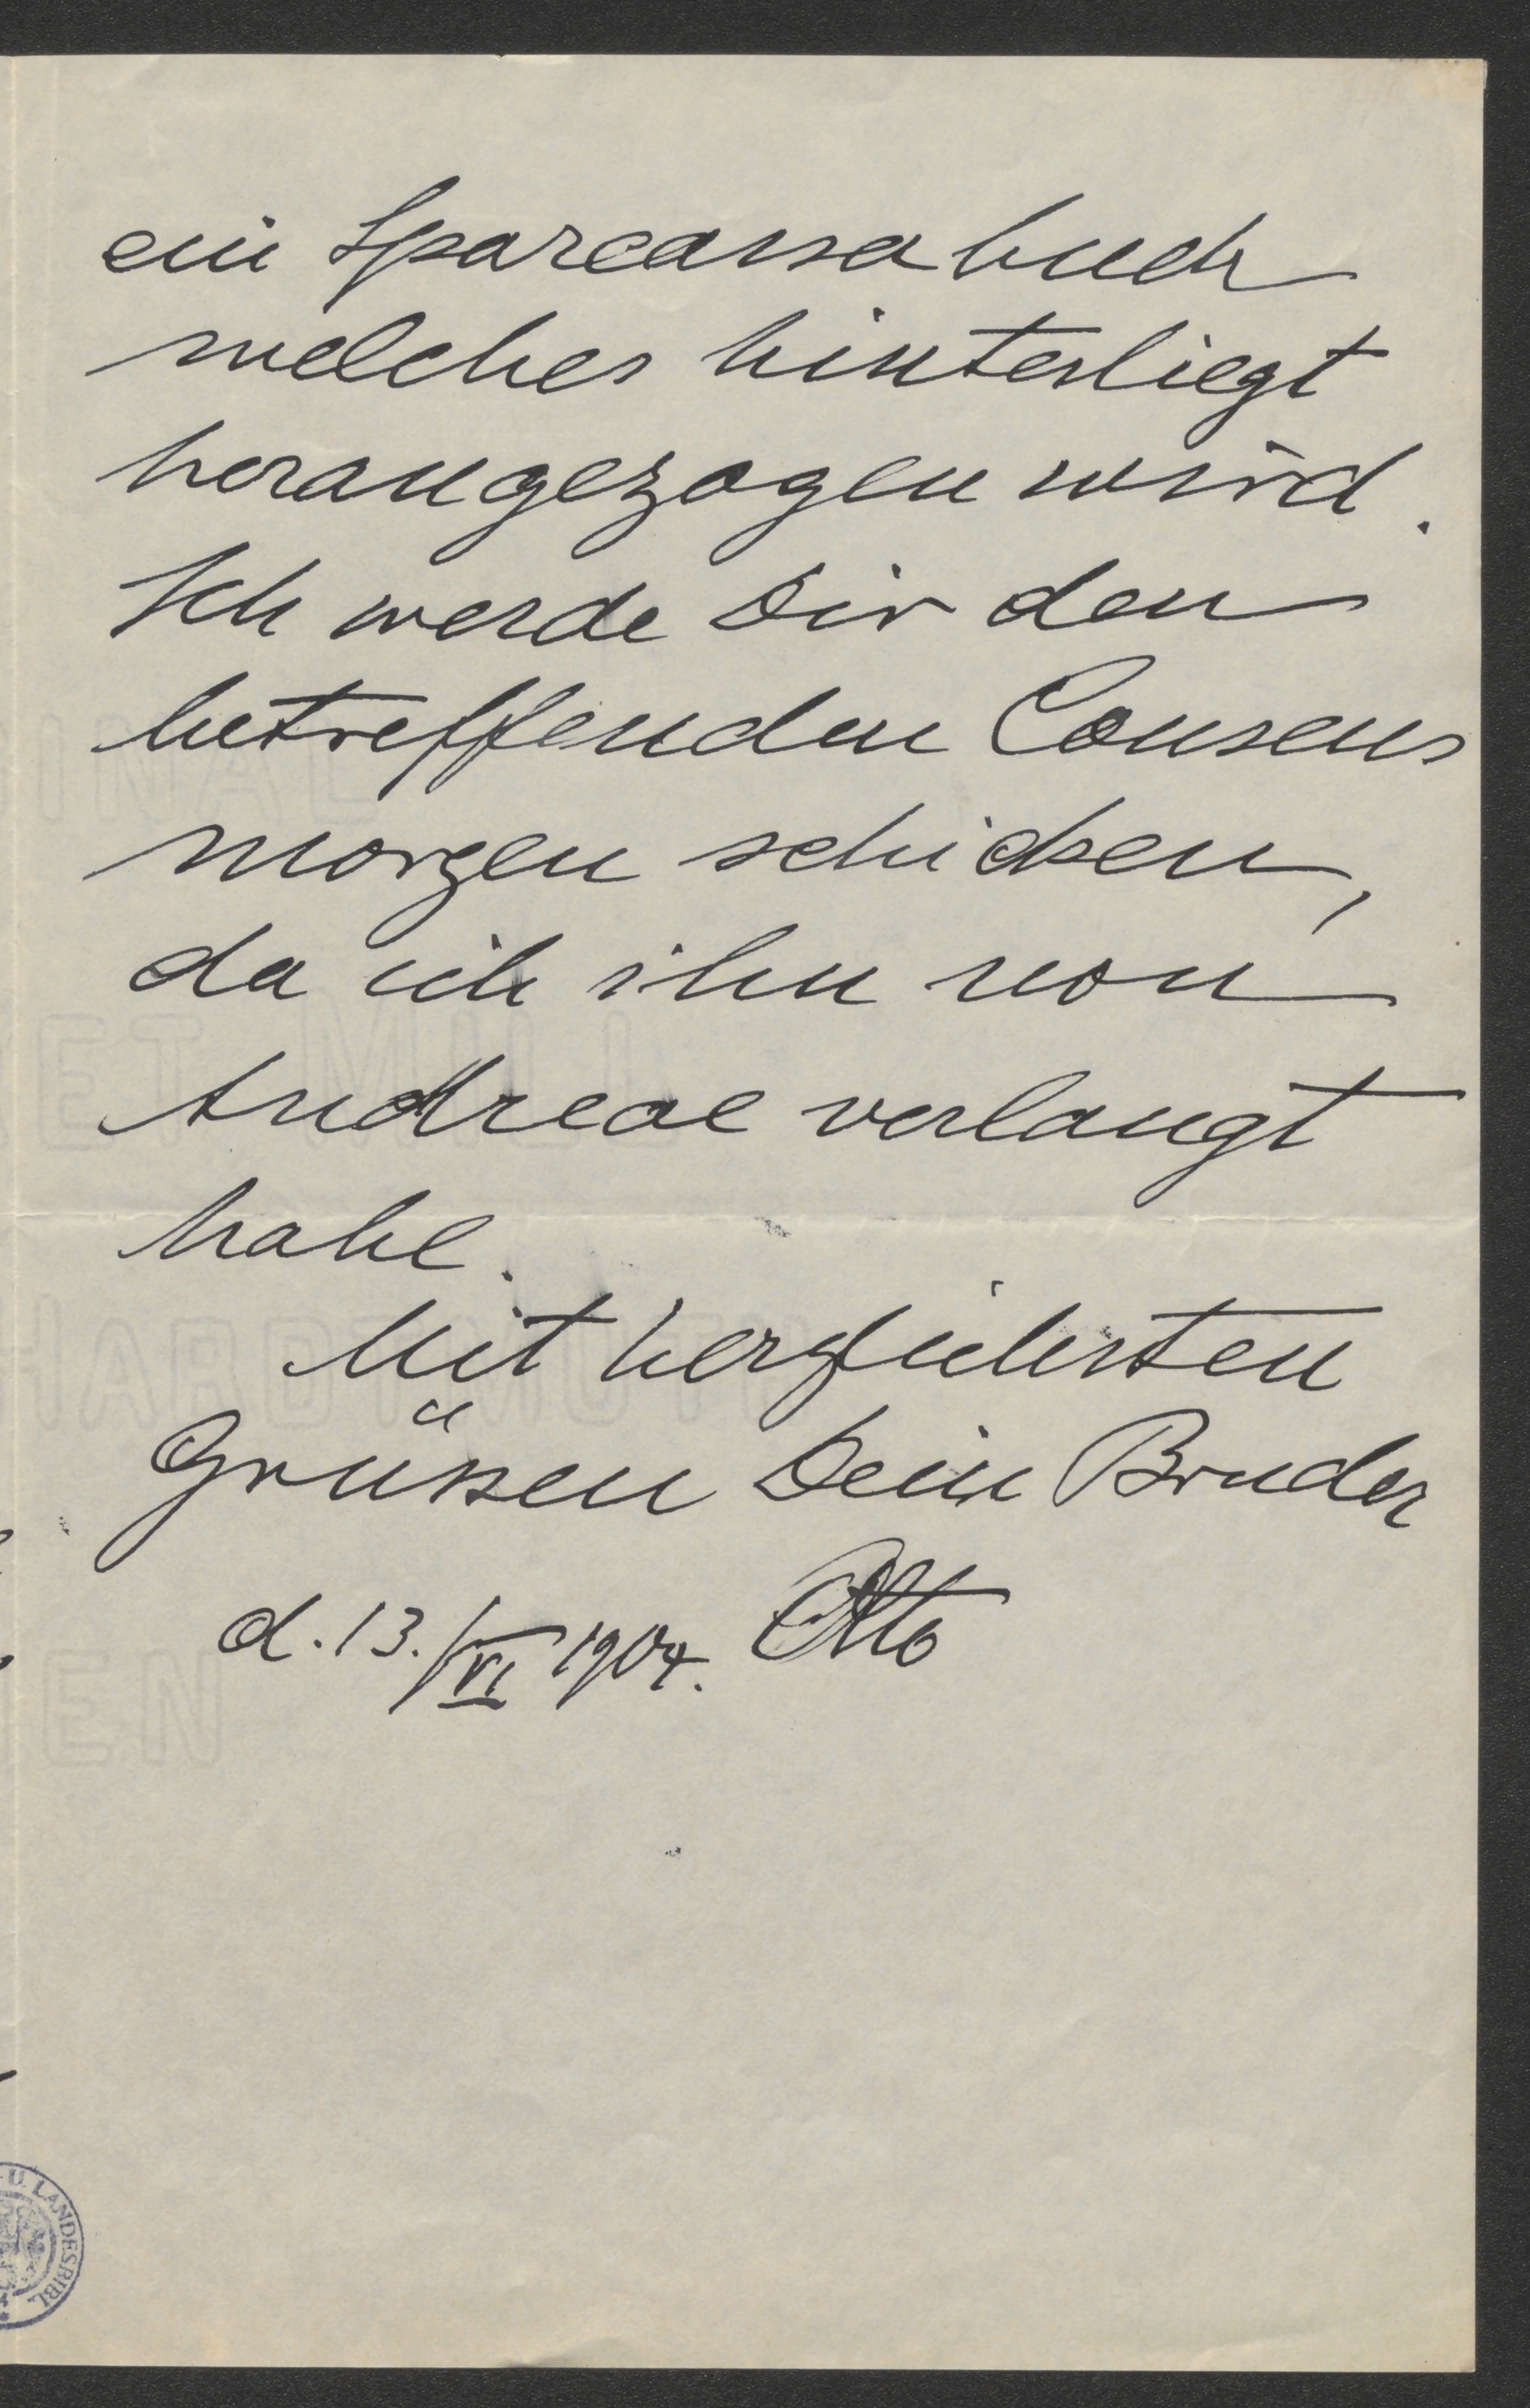 ein Sparcassabuch
welches hinterliegt
herangezogen wird.
Ich werde Dir den
betreffenden Consens
morgen schicken,
da ich ihn von
Andreae verlangt
habe.
Mit herzlichsten
Grüssen Dein Bruder
d. 13./VI 1904. Otto
INAL
ET MILL
IEN
U. LANDESBIBL.